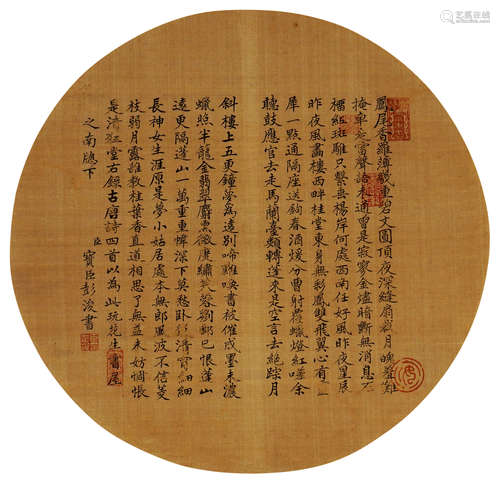 鳳尾香羅薄幾重碧文圓頂夜深縫扇裁月魄羞難
掩車走雷聲語未通曾是寂寥金燼暗斷無消息石
榴紅斑騅只繫垂楊岸何處西南任好風昨夜星辰
昨夜風畫樓西畔桂堂東身無彩鳳雙飛翼心有
犀一點通隔座送鉤春酒煖分曹射覆蠟燈紅嗟余
聽鼓應官去走馬蘭臺類轉蓬來是空言去絕踪月
斜樓上五更鐘夢為遠別啼難喚書被催成墨未濃
蠟照半籠金翡翠麝熏微度繡芙蓉劉郎已恨蓬山
遠更隔蓬山一萬重重幃深下莫愁卧後清宵細細
長神女生涯原是夢小姑居處本無郎風波不信菱
枝弱月露誰教桂葉香直道相思了無益未妨惆悵
是清狂右錄古唐詩四首以為此玩花生書屋
之南牕下
寶臣彭浚書